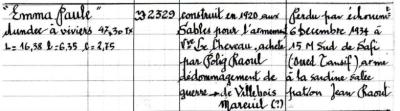 "Emma Paule"
dundee à viviers 47,30 Tx
L = 16,38 l = 6,35 c = 2,75
2329
construit en 1920 aux
Sables pour l'armement
Vve Le Cheveau, acheté
par Polig Raoul
dédommagement de
guerre - de Villebois
Mareuil (?)
Perdu par échouemt
6 Decembre 1934 à
15 M Sud de Safi
(Oued Tansif) armé
à la sardine salée
patron Jean Raoul